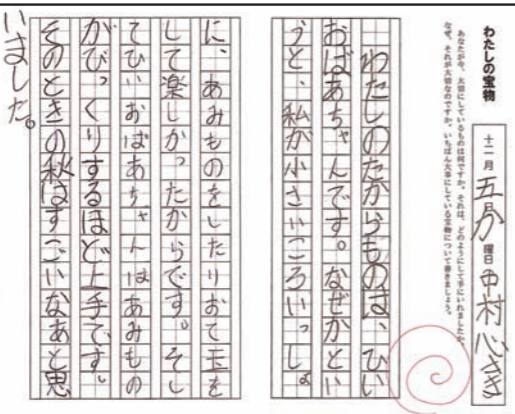 わたしの宝物
あなたが今、大切にしているものは何ですか。それは、どのようにして手にいれましたか。
なぜ、それが大切なのですか。いちばん大事にしている宝物について書きましょう。
十二月五日 曜日 中村 心さき
わたしのたからものは、ひい
おばあちゃんです。なぜかとい
うと、私が小さいころいっしょ
に、あみものをしたりおて玉を
して楽しかったからです。そし
てひいおばあちゃんはあみもの
がびっくりするほど上手です。
そのときの秋はすごいなあと思
いました。